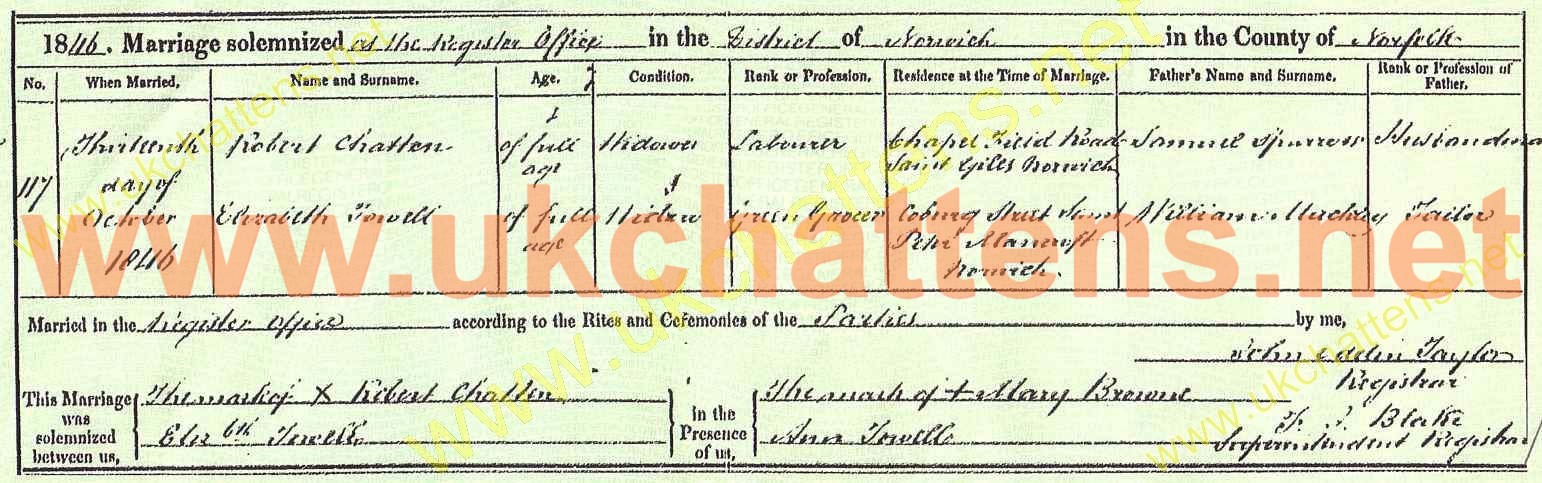 1846. Marriage solemnized at the Register Office in the District of Norwich in the County of Norfolk
No. When Married. Name and Surname. Age. Condition. Rank or Profession. Residence at the Time of Marriage. Father's Name and Surname. Rank or Profession of Father.
117 Thirteenth day of October 1846
Robert Chatten of full age Widower Labourer Chapel Field Road Saint Giles Norwich Samuel Husbandman
Elizabeth Towell of full age Widow Green Grocer Coburg Street Saint Peter Mancroft Norwich William Tailor
Married in the Register Office according to the Rites and Ceremonies of the Parties by me,
John Eddin Taylor
Registrar
This Marriage was solemnized between us, The mark of X Robert Chatten in the Presence of us, The mark of + Mary Browne
Elizbth Towell Ann Towell
Blake
Superintendent Registrar
www.ukchattens.net
www.ukchattens.net
www.ukchattens.net
www.ukchattens.net
www.ukchattens.net
www.ukchattens.net